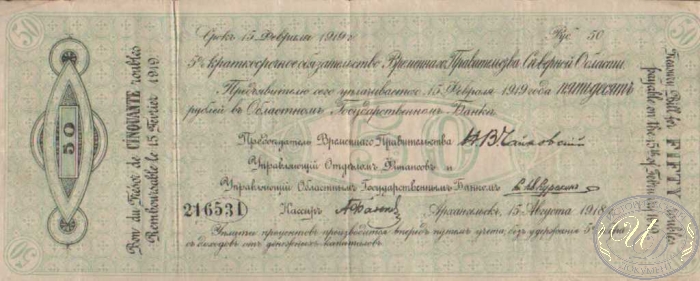 Срокъ 15 Февраля 1919 г.
Руб 50
5% краткосрочное обязательство Временнаго Правительства Северной Области.
Предъявителю сего уплачивается 15 Февраля 1919 года пятьдесятъ
рублей въ Областномъ Государственномъ Банкѣ.
Председатель Временнаго Правительства Н В Чайковский
Управляющий Отделомъ Финансовъ и
Управляющий Областнымъ Государственнымъ Банкомъ
216531
Кассиръ
Архангельскъ, 15 Августа 1918
Уплата процентовъ производится впередъ путемъ учета, безъ удержания 5%
съ доходовъ отъ денежныхъ капиталовъ.
Bon du Trésor de CINQUANTE roubles
Remboursable le 15 Fevrier 1919
50
50
50
50
50
Bill for FIFTY roubles
payable on the 15th of February